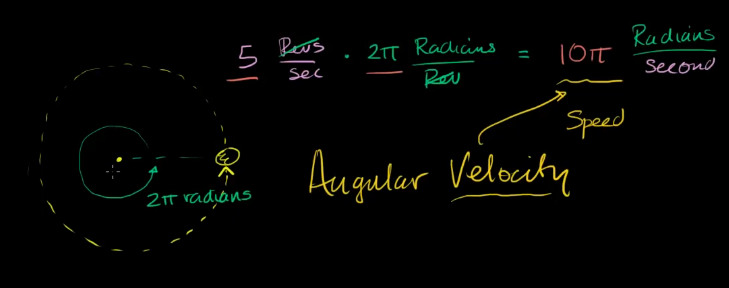 5 Revs/sec · 2π Radians/Rev = 10π Radians/second
Speed
Angular Velocity
2π radians